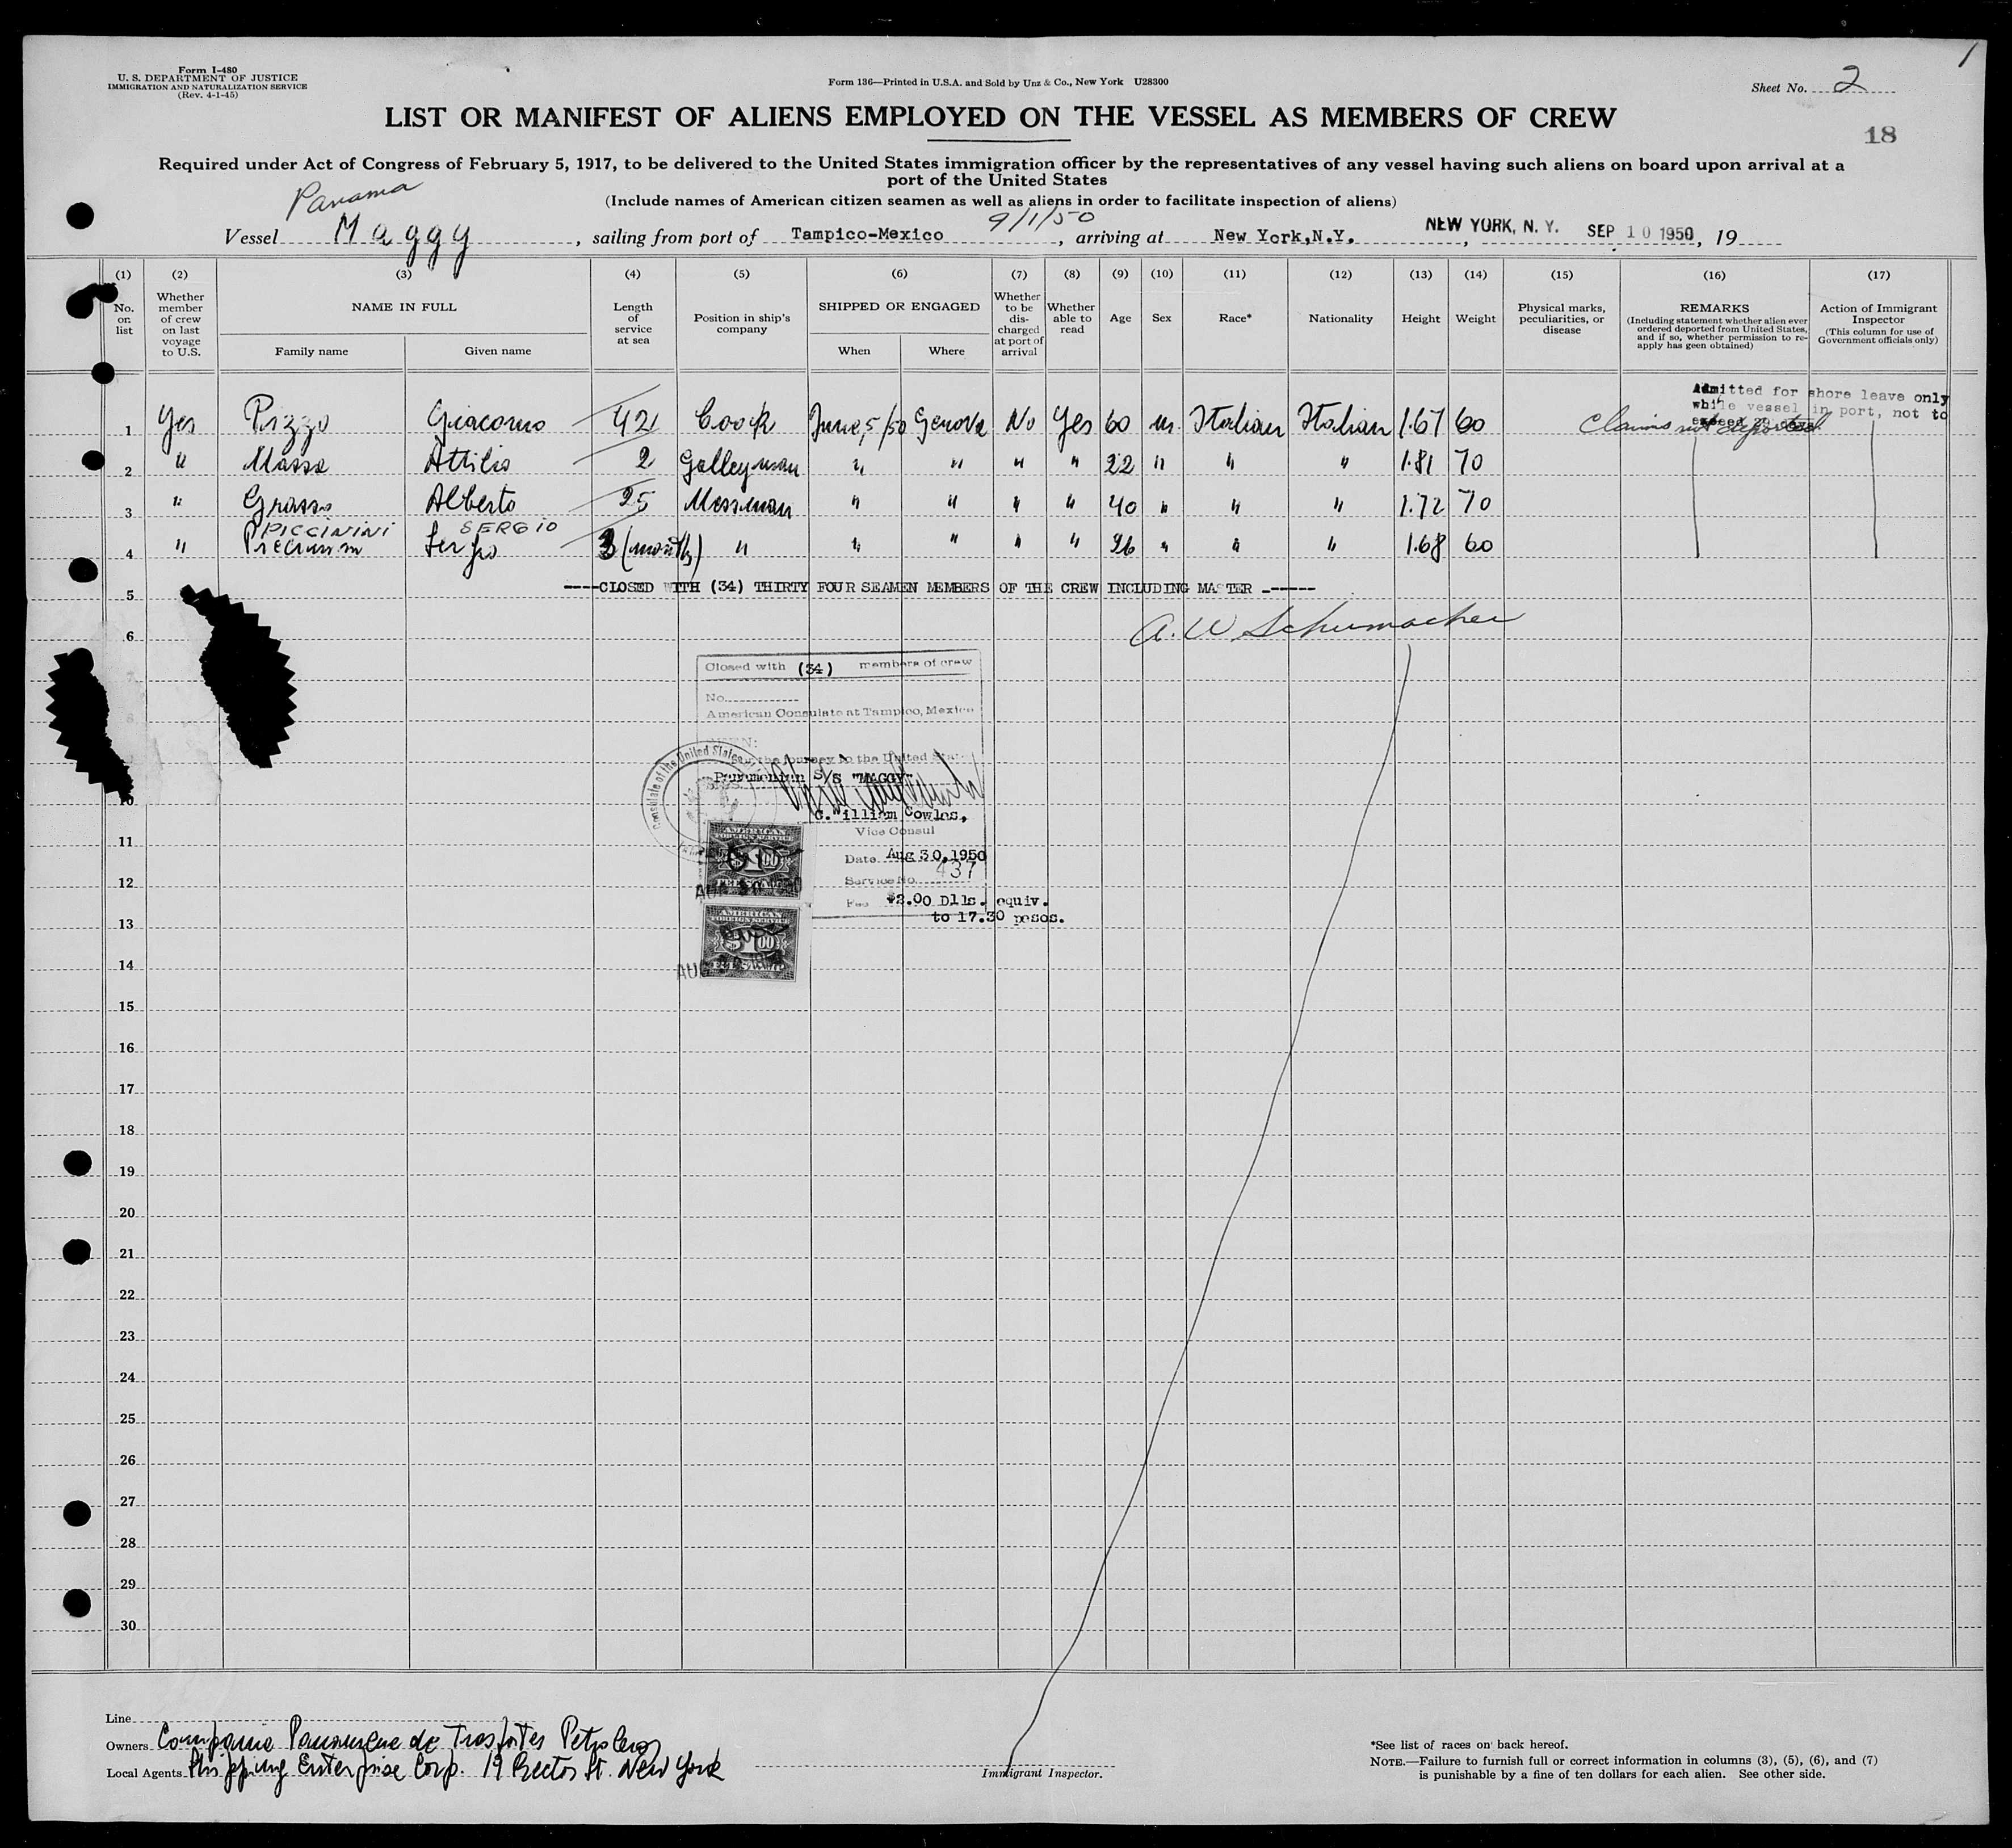 Form I-480
U. S. DEPARTMENT OF JUSTICE
IMMIGRATION AND NATURALIZATION SERVICE
(Rev. 4-1-45)
Form 136—Printed in U.S.A. and Sold by Unz & Co., New York U28300
Sheet No. 2
18
LIST OR MANIFEST OF ALIENS EMPLOYED ON THE VESSEL AS MEMBERS OF CREW
Required under Act of Congress of February 5, 1917, to be delivered to the United States immigration officer by the representatives of any vessel having such aliens on board upon arrival at a
port of the United States
(Include names of American citizen seamen as well as aliens in order to facilitate inspection of aliens)
Panama
9/1/50
Vessel Maggy, sailing from port of Tampico-Mexico, arriving at New York,N.Y. NEW YORK, N. Y. SEP 10 1950, 19
(1) (2) (3) (4) (5) (6) (7) (8) (9) (10) (11) (12) (13) (14) (15) (16) (17)
No. on list
Whether member of crew on last voyage to U.S.
NAME IN FULL
Family name
Given name
Length of service at sea
Position in ship's company
SHIPPED OR ENGAGED
When
Where
Whether to be discharged at port of arrival
Whether able to read
Age
Sex
Race*
Nationality
Height
Weight
Physical marks, peculiarities, or disease
REMARKS
(Including statement whether alien ever ordered deported from United States, and if so, whether permission to re-apply has geen obtained)
Action of Immigrant Inspector
(This column for use of Government officials only)
Admitted for shore leave only
while vessel in port, not to
exceed 29 days
1 Yes Pizzo Giacomo 42 Coock June,5/50 Genova No Yes 60 m. Italian Italian 1.67 60 Claims not deported
2 " Massa Attilio 2 Galleyman " " " " 22 " " " 1.81 70
3 " Grasso Alberto 25 Messman " " " " 40 " " " 1.72 70
PICCININI SERGIO
4 " Piccinini Sergio 3 (months) " " " " " 26 " " " 1.68 60
5 ----CLOSED WITH (34) THIRTY FOUR SEAMEN MEMBERS OF THE CREW INCLUDING MASTER -----
6 A. W Schumacher
7
8
9
10
11
12
13
14
15
16
17
18
19
20
21
22
23
24
25
26
27
28
29
30
Closed with (34) members of crew
No.
American Consulate at Tampico, Mexico
SEEN:
for the journey to the United States
Panamenian S/S "MAGGY"
Consulate of the United States
C. William Cowles,
Vice Consul
Date Aug 30,1950
Service No. 437
Fee $2.00 Dlls. equiv.
to 17.30 pesos.
AMERICAN
FOREIGN SERVICE
$1.00
FEE STAMP
AMERICAN
FOREIGN SERVICE
$1.00
FEE STAMP
Line
Owners Compania Panamena de Trasportes Petroleros
Local Agents Shipping Enterprise Corp. 19 Rector St. New York
Immigrant Inspector.
*See list of races on back hereof.
NOTE.—Failure to furnish full or correct information in columns (3), (5), (6), and (7)
is punishable by a fine of ten dollars for each alien. See other side.